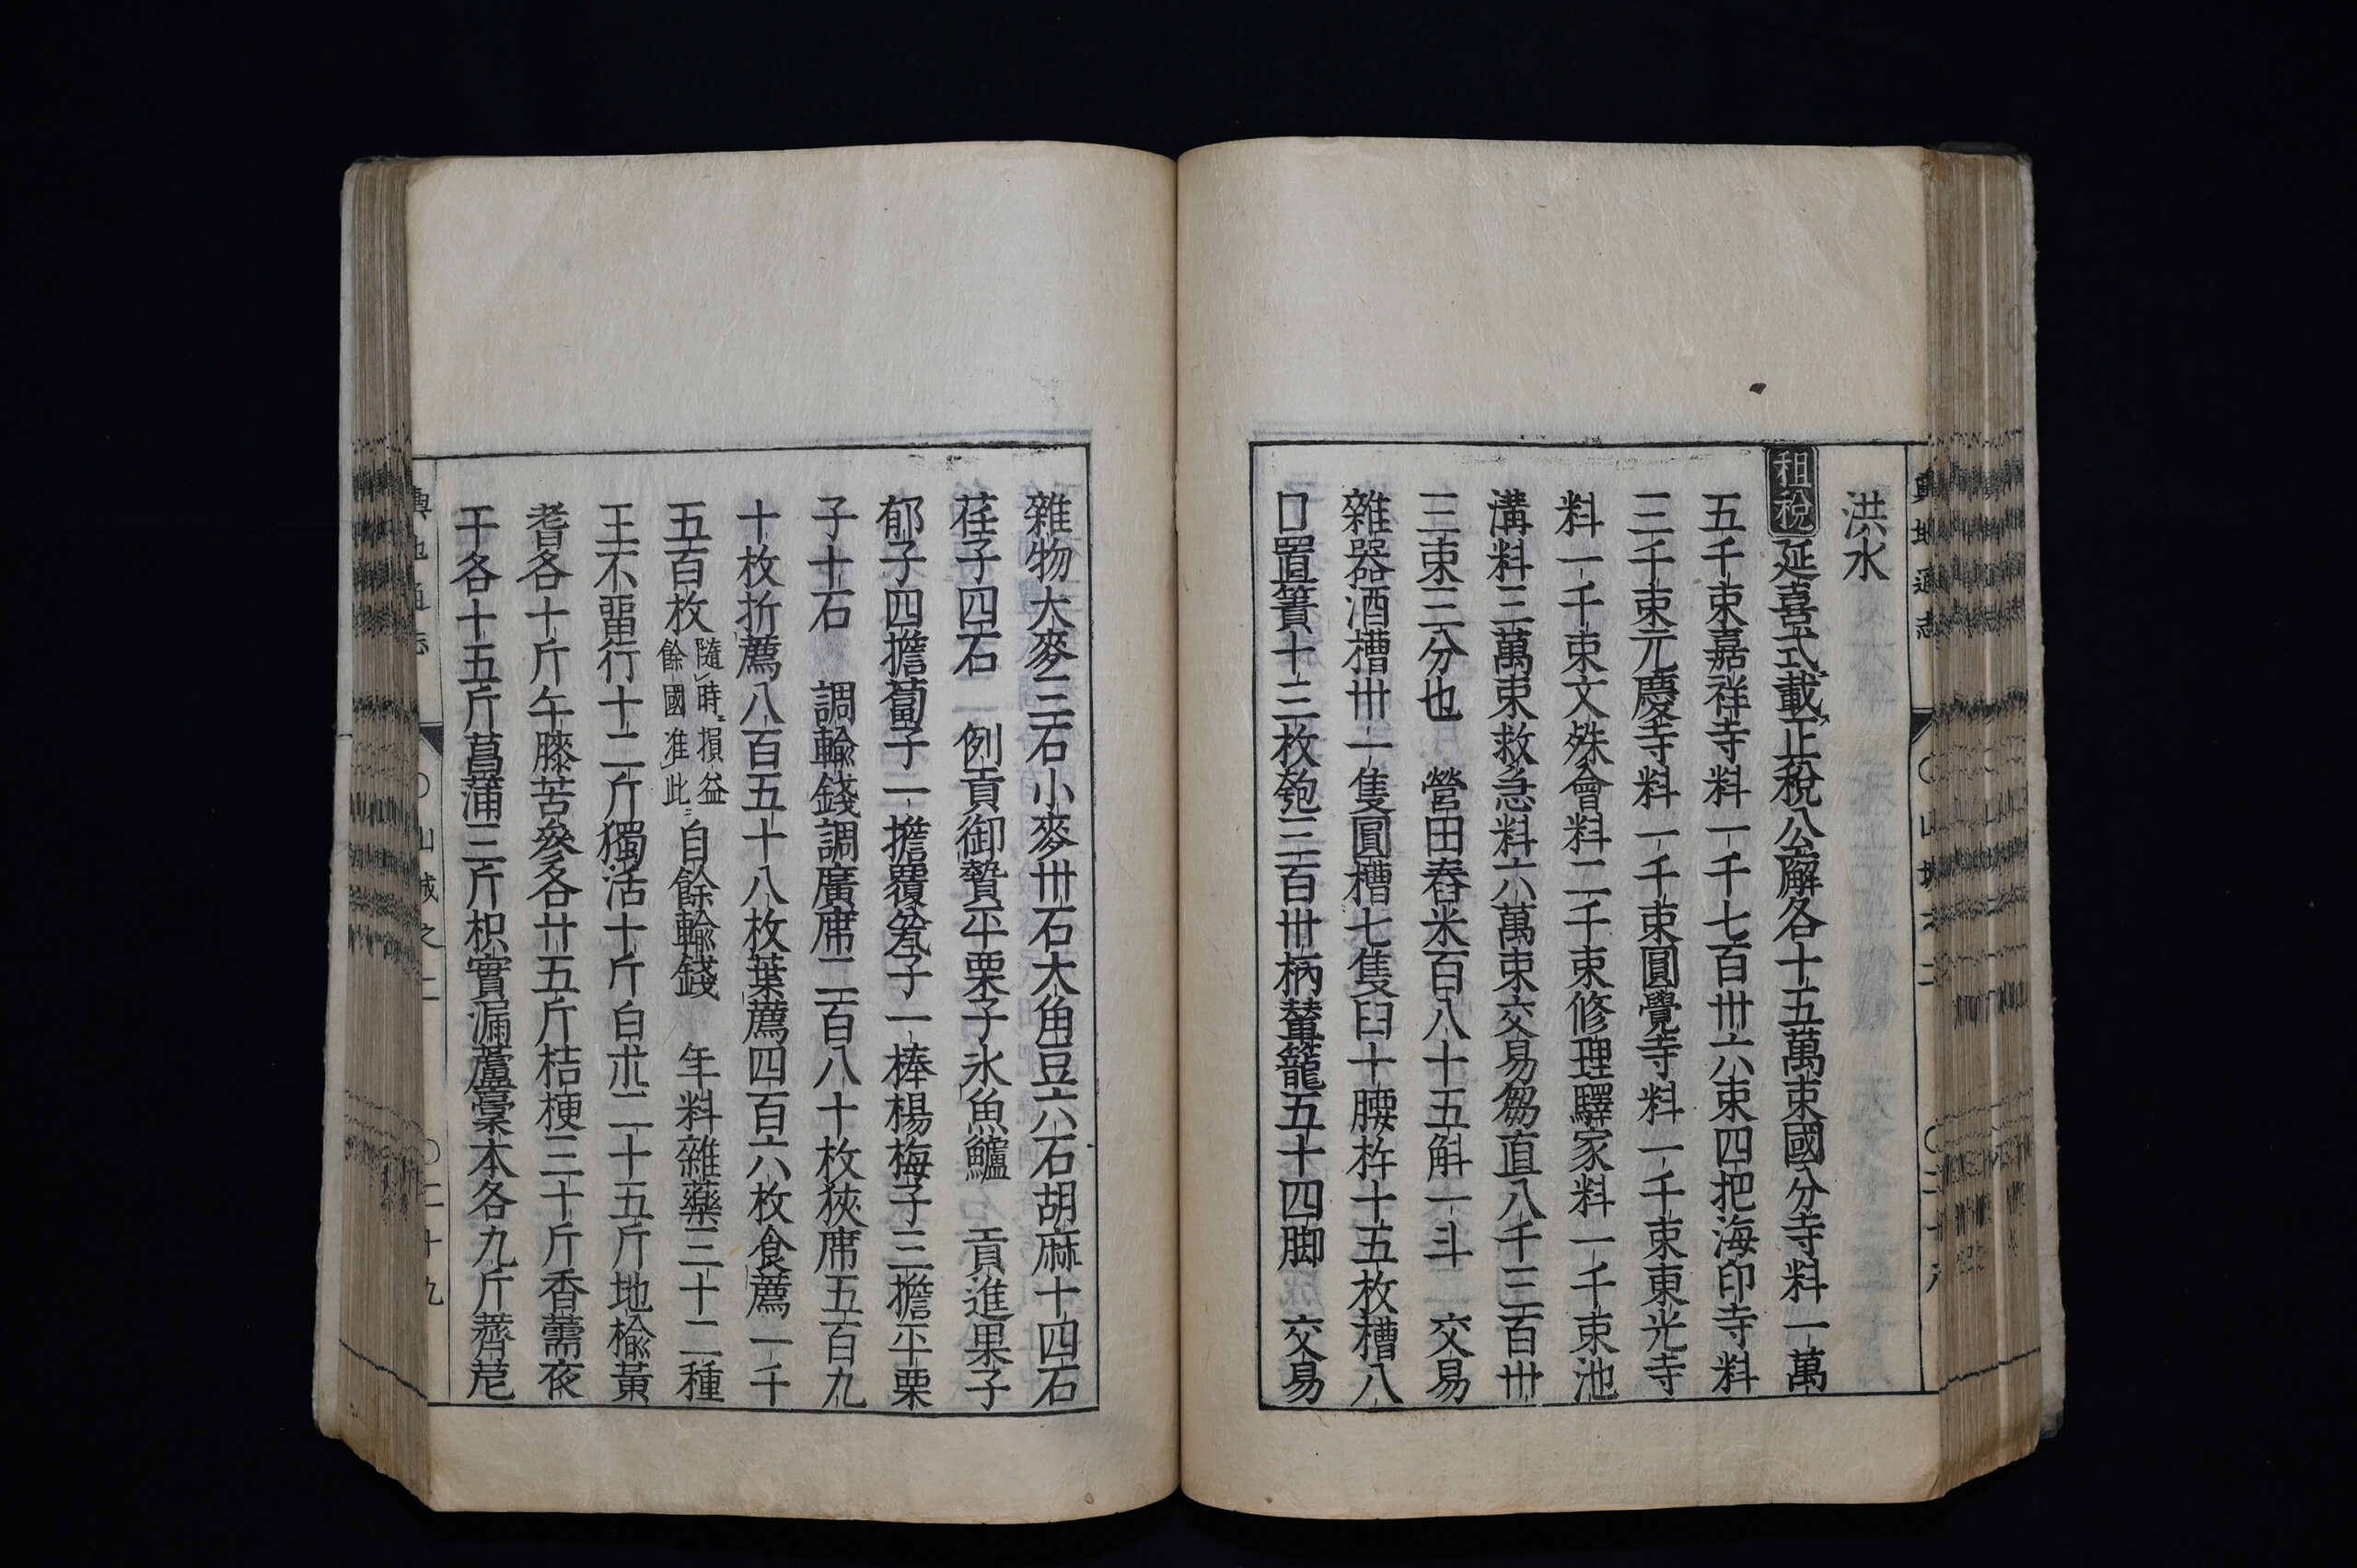 洪水
租税延喜式載正税公廨各十五萬束國分寺料一萬
五千束嘉祥寺料一千七百卅六束四把海印寺料
三千束元慶寺料一千束圓覺寺料一千束東光寺
料一千束文殊會料二千束修理驛家料一千束池
溝料三萬束救急料六萬束交易芻直八千三百卅
三束三分也 營田舂米百八十五斛一斗 交易
雜器酒槽卅一隻圓槽七隻臼十腰杵十五枚槽八
口置簀十三枚匏三百卅柄輦籠五十四脚 交易
雜物大麥三石小麥卅石大角豆六石胡麻十四石
荏子四石 例貢御贄平栗子氷魚鱸 貢進果子
郁子四擔蔔子二擔覆盆子一棒楊梅子三擔平栗
子十石 調輸錢調廣席二百八十枚狹席五百九
十枚折薦八百五十八枚葉薦四百六枚食薦一千
五百枚隨時損益餘國准此自餘輸錢 年料雜藥三十二種
王不畱行十二斤獨活十斤白朮二十五斤地楡黃
耆各十斤午膝苦參各廿五斤桔梗三十斤香薷夜
干各十五斤菖蒲三斤枳實漏蘆稾本各九斤薺苨
輿地通志 ○山城之二 ○二十九